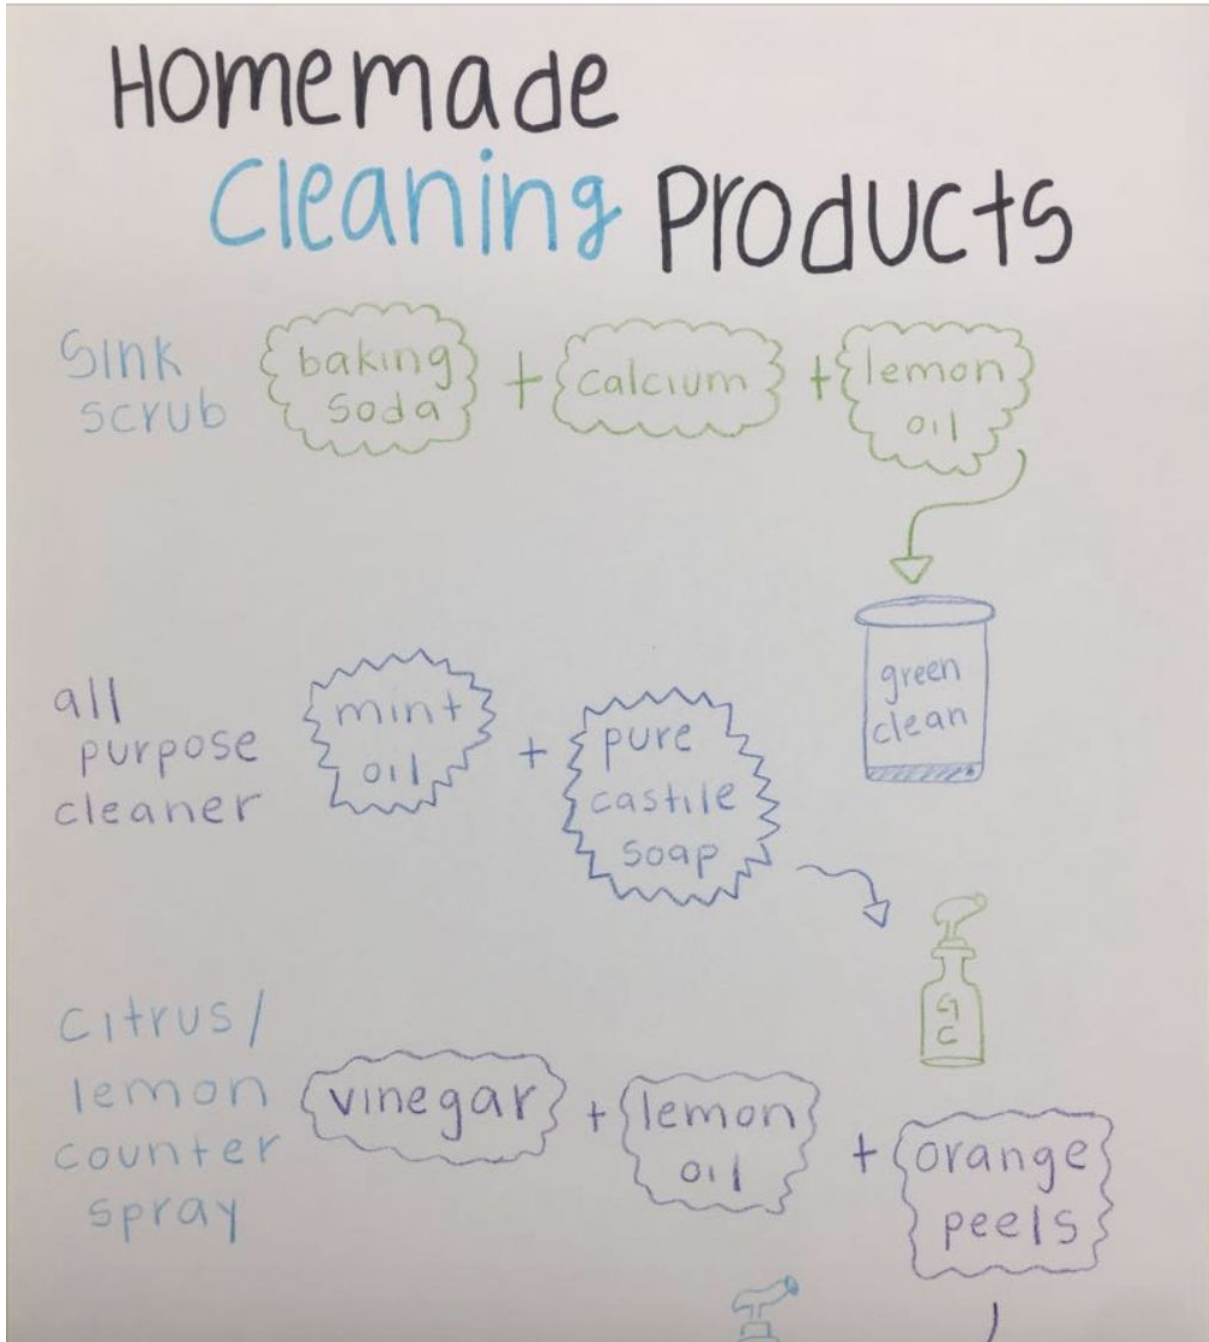 Homemade
Cleaning Products
Sink
scrub
baking
soda
+
calcium
+
lemon
oil
green
clean
all
purpose
cleaner
mint
oil
+
pure
castile
soap
G
C
citrus/
lemon
counter
spray
vinegar
+
lemon
oil
+
orange
peels